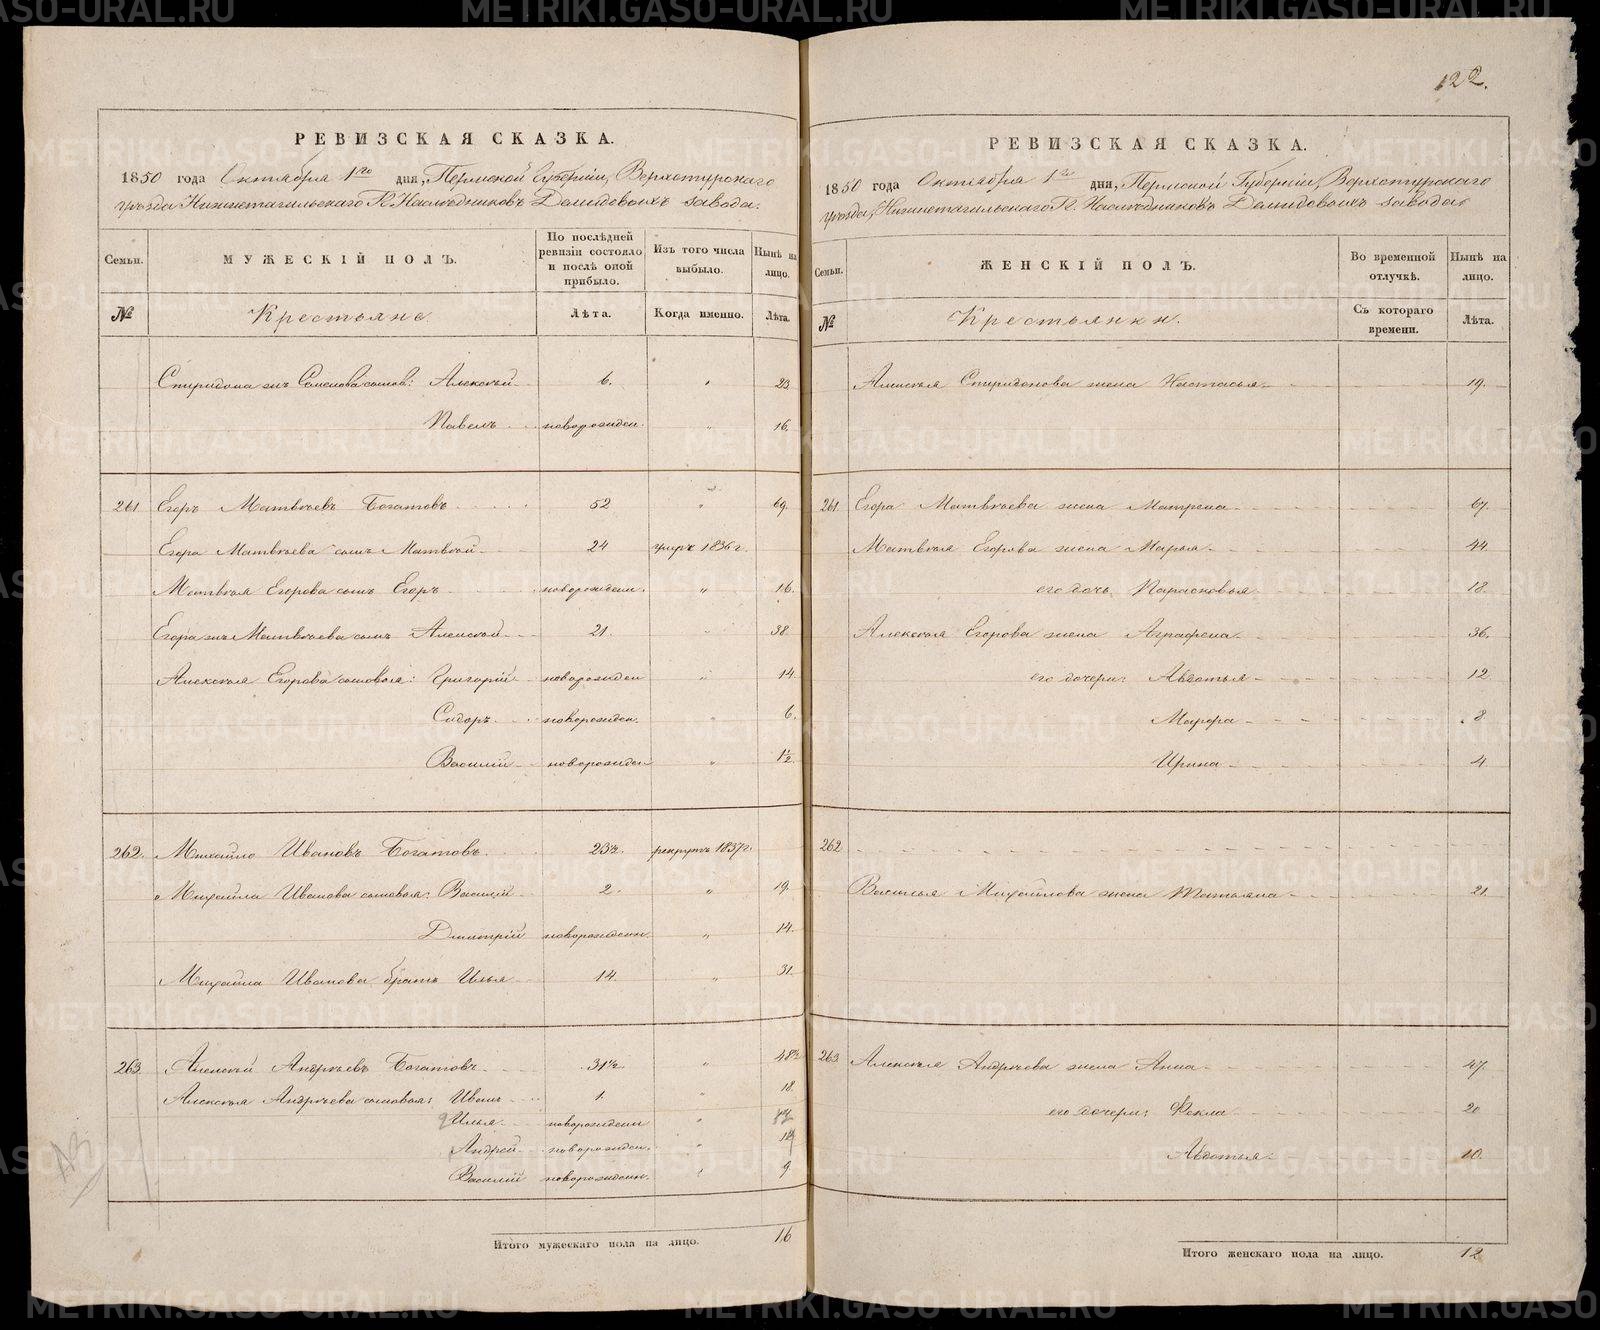 122.
РЕВИЗСКАЯ СКАЗКА.
1850 года Октября 1го дня, Пермской Губерніи, Верхотурскаго
уѣзда Нижнетагильскаго Г. Наслѣдниковъ Демидовыхъ завода.
Семьи. МУЖЕСКІЙ ПОЛЪ. По послѣдней ревизіи состояло и послѣ оной прибыло. Изъ того числа выбыло. Нынѣ на лицо.
№ Крестьяне. Лѣта. Когда именно. Лѣта.
Спиридона Семенова сынов: Алексѣй 6. " 23
Павелъ новорожден. " 16.
261. Егоръ Матвѣевъ Богатовъ 52 " 69.
Егора Матвѣева сынъ Матвѣй 24 умре 1836 г.
Матвѣя Егорова сынъ Егоръ новорожден. " 16.
Егора Матвѣева сынъ Алексѣй 21. " 38
Алексѣя Егорова сыновья: Григорій новорожден " 14.
Сидоръ новорожден. " 6.
Василій новорожден " 1½
262. Михайло Ивановъ Богатовъ 23½. рекрутъ 1837 г.
Михайла Иванова сыновья: Василій 2. " 19.
Дмитрій новорожден. " 14.
Михайла Иванова братъ Илья 14. " 31.
263. Алексѣй Андреевъ Богатовъ 31½. " 48½
Алексѣя Андреева сыновья: Иванъ 1. " 18.
Илья новорожден "
Андрей новорожден. "
Василій новорожден. " 9
Итого мужескаго пола на лицо. 16
РЕВИЗСКАЯ СКАЗКА.
1850 года Октября 1го дня, Пермской Губерніи, Верхотурскаго
уѣзда, Нижнетагильскаго Г. Наслѣдниковъ Демидовыхъ завода.
Семьи. ЖЕНСКІЙ ПОЛЪ. Во временной отлучкѣ. Нынѣ на лицо.
№ Крестьянки. Съ котораго времени. Лѣта.
Алексѣя Спиридонова жена Настасья 19.
261. Егора Матвѣева жена Матрена 67.
Матвѣя Егорова жена Марья 44.
его дочь Парасковья 18.
Алексѣя Егорова жена Аграфена 36.
его дочери: Авдотья 12
Марфа 8
Ирина 4.
262.
Василья Михайлова жена Татьяна 21.
263. Алексѣя Андреева жена Анна 47.
его дочери: Фекла 20
Авдотья 10.
Итого женскаго пола на лицо. 12
METRIKI.GASO-URAL.RU